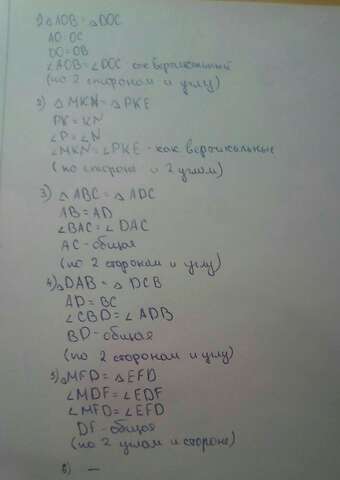 1) △AOB = △DOC
AO = OC
DO = OB
∠AOB = ∠DOC как вертикальный
(по 2 сторонам и углу)
2) △MKN = △PKE
PK = KN
∠P = ∠N
∠MKN = ∠PKE - как вертикальные
(по стороне и 2 углам)
3) △ABC = △ADC
AB = AD
∠BAC = ∠DAC
AC - общая
(по 2 сторонам и углу)
4) △DAB = △DCB
AD = BC
∠CBD = ∠ADB
BD - общая
(по 2 сторонам и углу)
5) △MFD = △EFD
∠MDF = ∠EDF
∠MFD = ∠EFD
DF - общая
(по 2 углам и стороне)
6) —